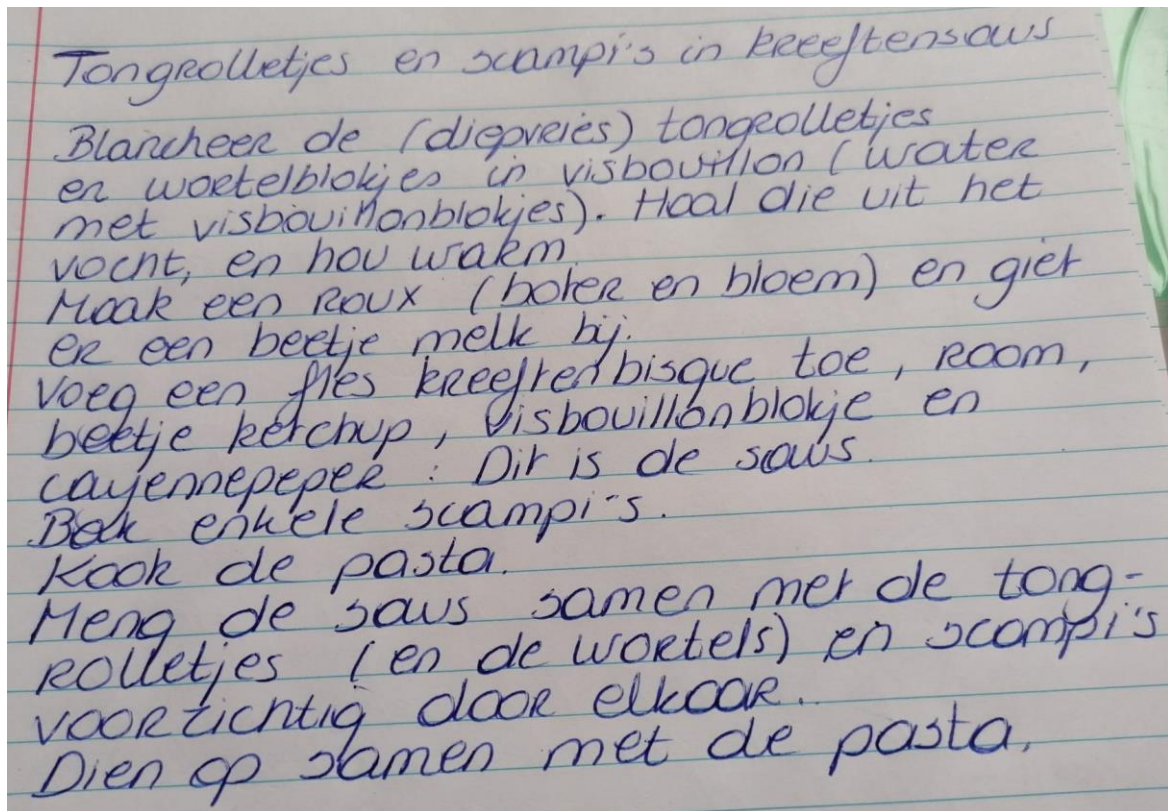 Tongrolletjes en scampi's in kreeftensaus
Blancheer de (diepvries) tongrolletjes
en wortelblokjes in visbouillon (water
met visbouillonblokjes). Haal die uit het
vocht, en hou warm.
Maak een roux (boter en bloem) en giet
er een beetje melk bij.
Voeg een fles kreeftenbisque toe, room,
beetje ketchup, visbouillonblokje en
cayennepeper : Dit is de saus.
Bak enkele scampi's.
Kook de pasta.
Meng de saus samen met de tong-
rolletjes (en de wortels) en scampi's
voorzichtig door elkaar..
Dien op samen met de pasta.